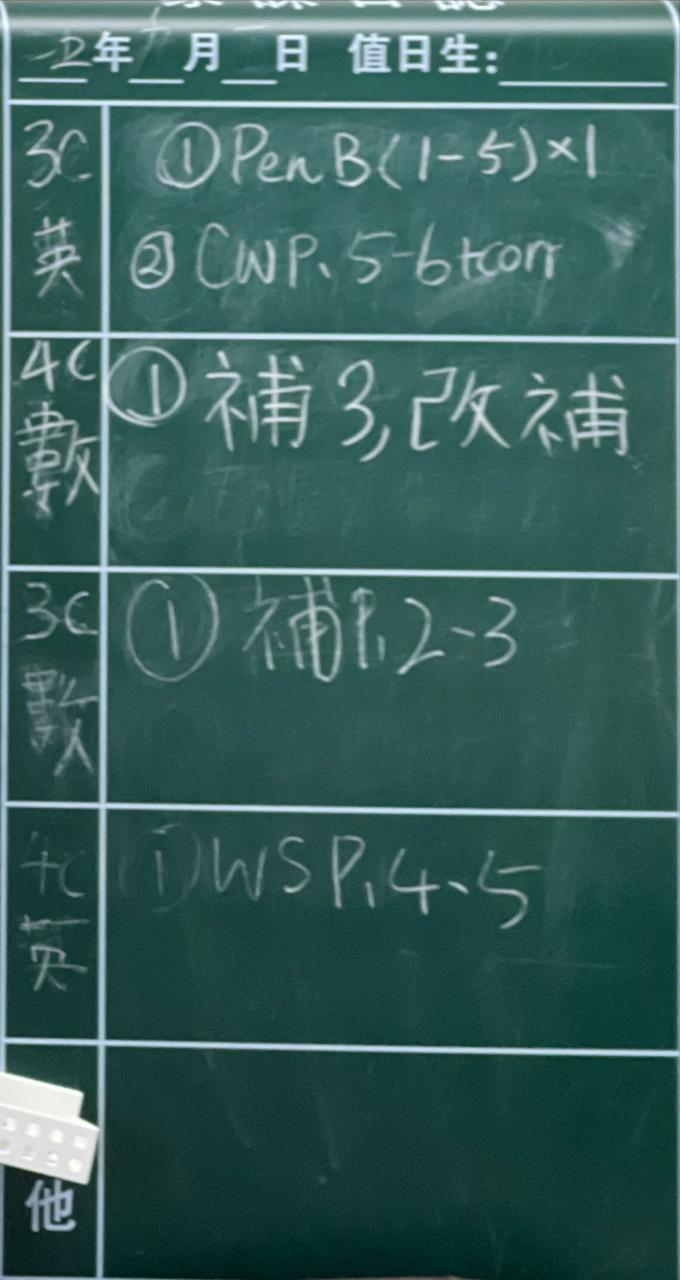 年 月 日 值日生:
3C
英
①Pen B(1-5)×1
②CWP、5-6+corr
4C
數
①補3,改補
3C
數
①補P.2-3
4C
英
①WSP、4、5
他